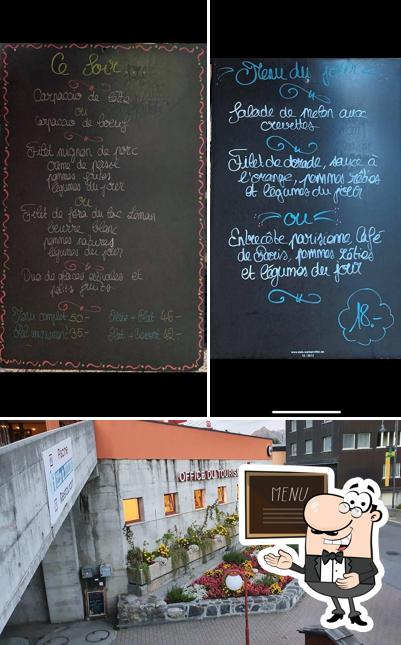 Ce Soir
Carpaccio de
ou
Carpaccio de boeuf
Filet mignon de porc
pommes frites
légumes du jour
Ou
Filet de féra du lac Léman
beurre blanc
pommes natures
légumes du jour
Duo de glaces estivales et
petits fruits
Menu complet 50.-
Plat 35.-
Plat 46.-
Plat + Dessert 42.-
Menu du jour
Salade de melon aux
crevettes
Filet de dorade, sauce à
l'orange, pommes rôties
et légumes du jour
OU
Entrecôte parisienne Café
de Paris, pommes rôties
et légumes du jour
18.-
Piscine
OFFICE DU TOURIS
MENU